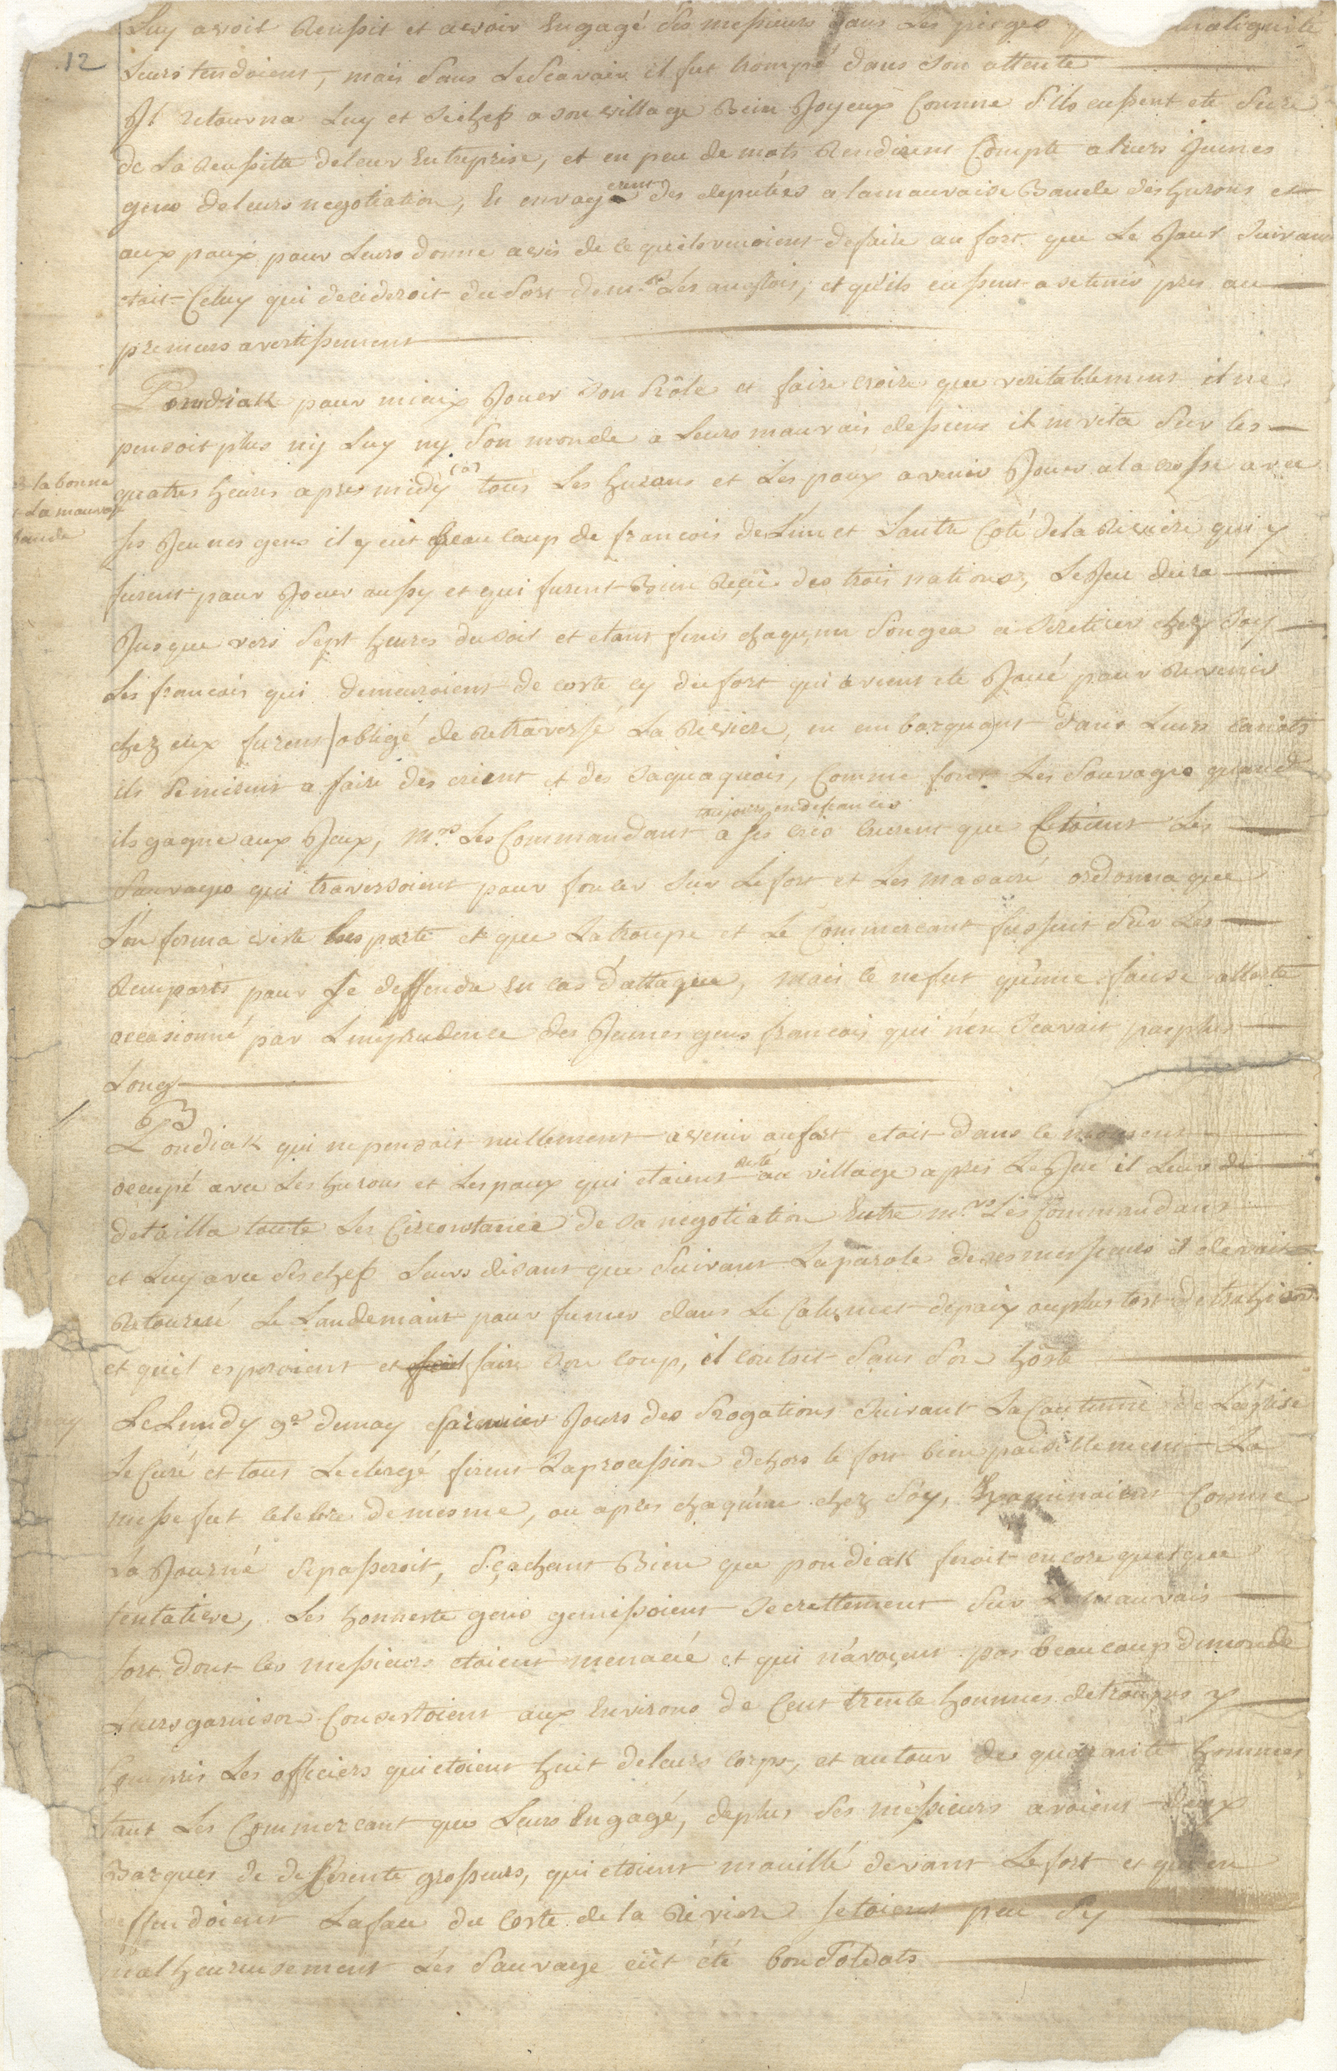 12
Luy avoit Reussit et avoir Engagé Ses messieurs dans Les pieges
Leurs tendoient, mais Sans Le Scavair il fut trompé dans Son attente
Jl retourna Luy et Se chefs a son village Bien Joyeux Comme S'ils eussent ete Sure
de La Reussitte deleur Entreprise, et en peu de mots Rendirent Compte a leurs Jeunes
gens deleurs negotiation, Et envoyerent des deputées a lamauvaise Bande des hurons et
aux poux pour Leurs donne avis de ce quils venoient defaire au fort que Le Jour Suivant
etoit Celuy qui decideroit du Sort de mrs Les anglois, et qu'ils eussent a se tenir pres au
premiers avertissement
Pondiak pour mieux Jouer Son Rôle et faire croire que veritablement il ne
pensoit plus ny Luy ny Son monde a Leurs mauvais dessiens il invita Sur les
quatres heures apres midy (a) tous Les hurons et Les poux avenir Jouer a la crosse avec
a la bonne
et La mauvais
bande
Ses Jeunes gens il y eut Beaucoup de francois de L'un et Lautre Coté dela Riviere qui y
furent pour Jouer aussy et qui furent Bien Reçüe des trois nations, Le Jeu dura
Jusque vers Sept heures du Soit et etant finis chaqu'un Songea a Se retirer chez Soy
Les francois qui demeuroient de coste cy du fort qui avient ete Joué pour Revenir
chez eux furent obligé de Retraversé La Riviere, en embarquant dans Leurs canots
ils Semirent a faire des crient et des Saquaquois, Comme font Les Sauvages quand
ils gagne aux Jeux, mrs Les Commandant toujours en defiance a ses cris crurent que Cetoient Les
Sauvages qui traversoient pour foncer Sur Le fort et Les masacré ordonna que
L'on ferma viste Les porte et que La troupe et Le Commercant fussent Sur Les
Remparts pour Se deffendre En cas D'attaque, mais ce ne fut qu'une fausse allerte
occasionné par L'imprudence des Jeunes gens francois qui n'en Scavait pas plus
Long
Pondiak qui ne pensait nullement a venir au fort etoit dans ce moment
occupé avec Les hurons et Les poux qui etoient resté au village apres Le Jeu il Leur de
detailla toutte Les Circonstance de Sa negotiation Entre mrs Les Commandans
et Luy avec Ses chefs Leurs disant que Suivant La parole de ses messieurs il devait
Retourné Le Landemaint pour fumer dans Le Calumet de paix ou plus tost de trahison
et quil esperoient et faire Son coup, il contoit Sans Son hôste
may
Le Lundy 9e du may premier Jours des Rogations Suivant La Coutume de L'eglise
Le Curé et tous Le clergé firent La procession dehors le fort bien paisiblement La
messe fut celebre de mesme, ou apres chaqu'un chez Soy, Examinoient Comme
La Journé Se passeroit, Sçachant Bien que pondiak feroit encore quelque
tentative, Les honneste gens gemissoient Secrettement Sur Le mauvais
sort dont Ces messieurs etoient menacé et qui n'avoient pas beaucoup de monde
Leurs garnison Consistoient aux Environs de Cent trente hommes de troupes y
Compris Les officiers qui etoient huit de leurs corps, et autour de quarante hommes
tant Les Commercant que Leurs Engagé, de plus Ses messieurs avoient deux
Barques de differente grosseurs, qui etoient mouillé devant Le fort et qui en
deffendoient La face du Coste de la Riviere setoient peu Sy
malheureusement Les Sauvage eüt été bon Soldats